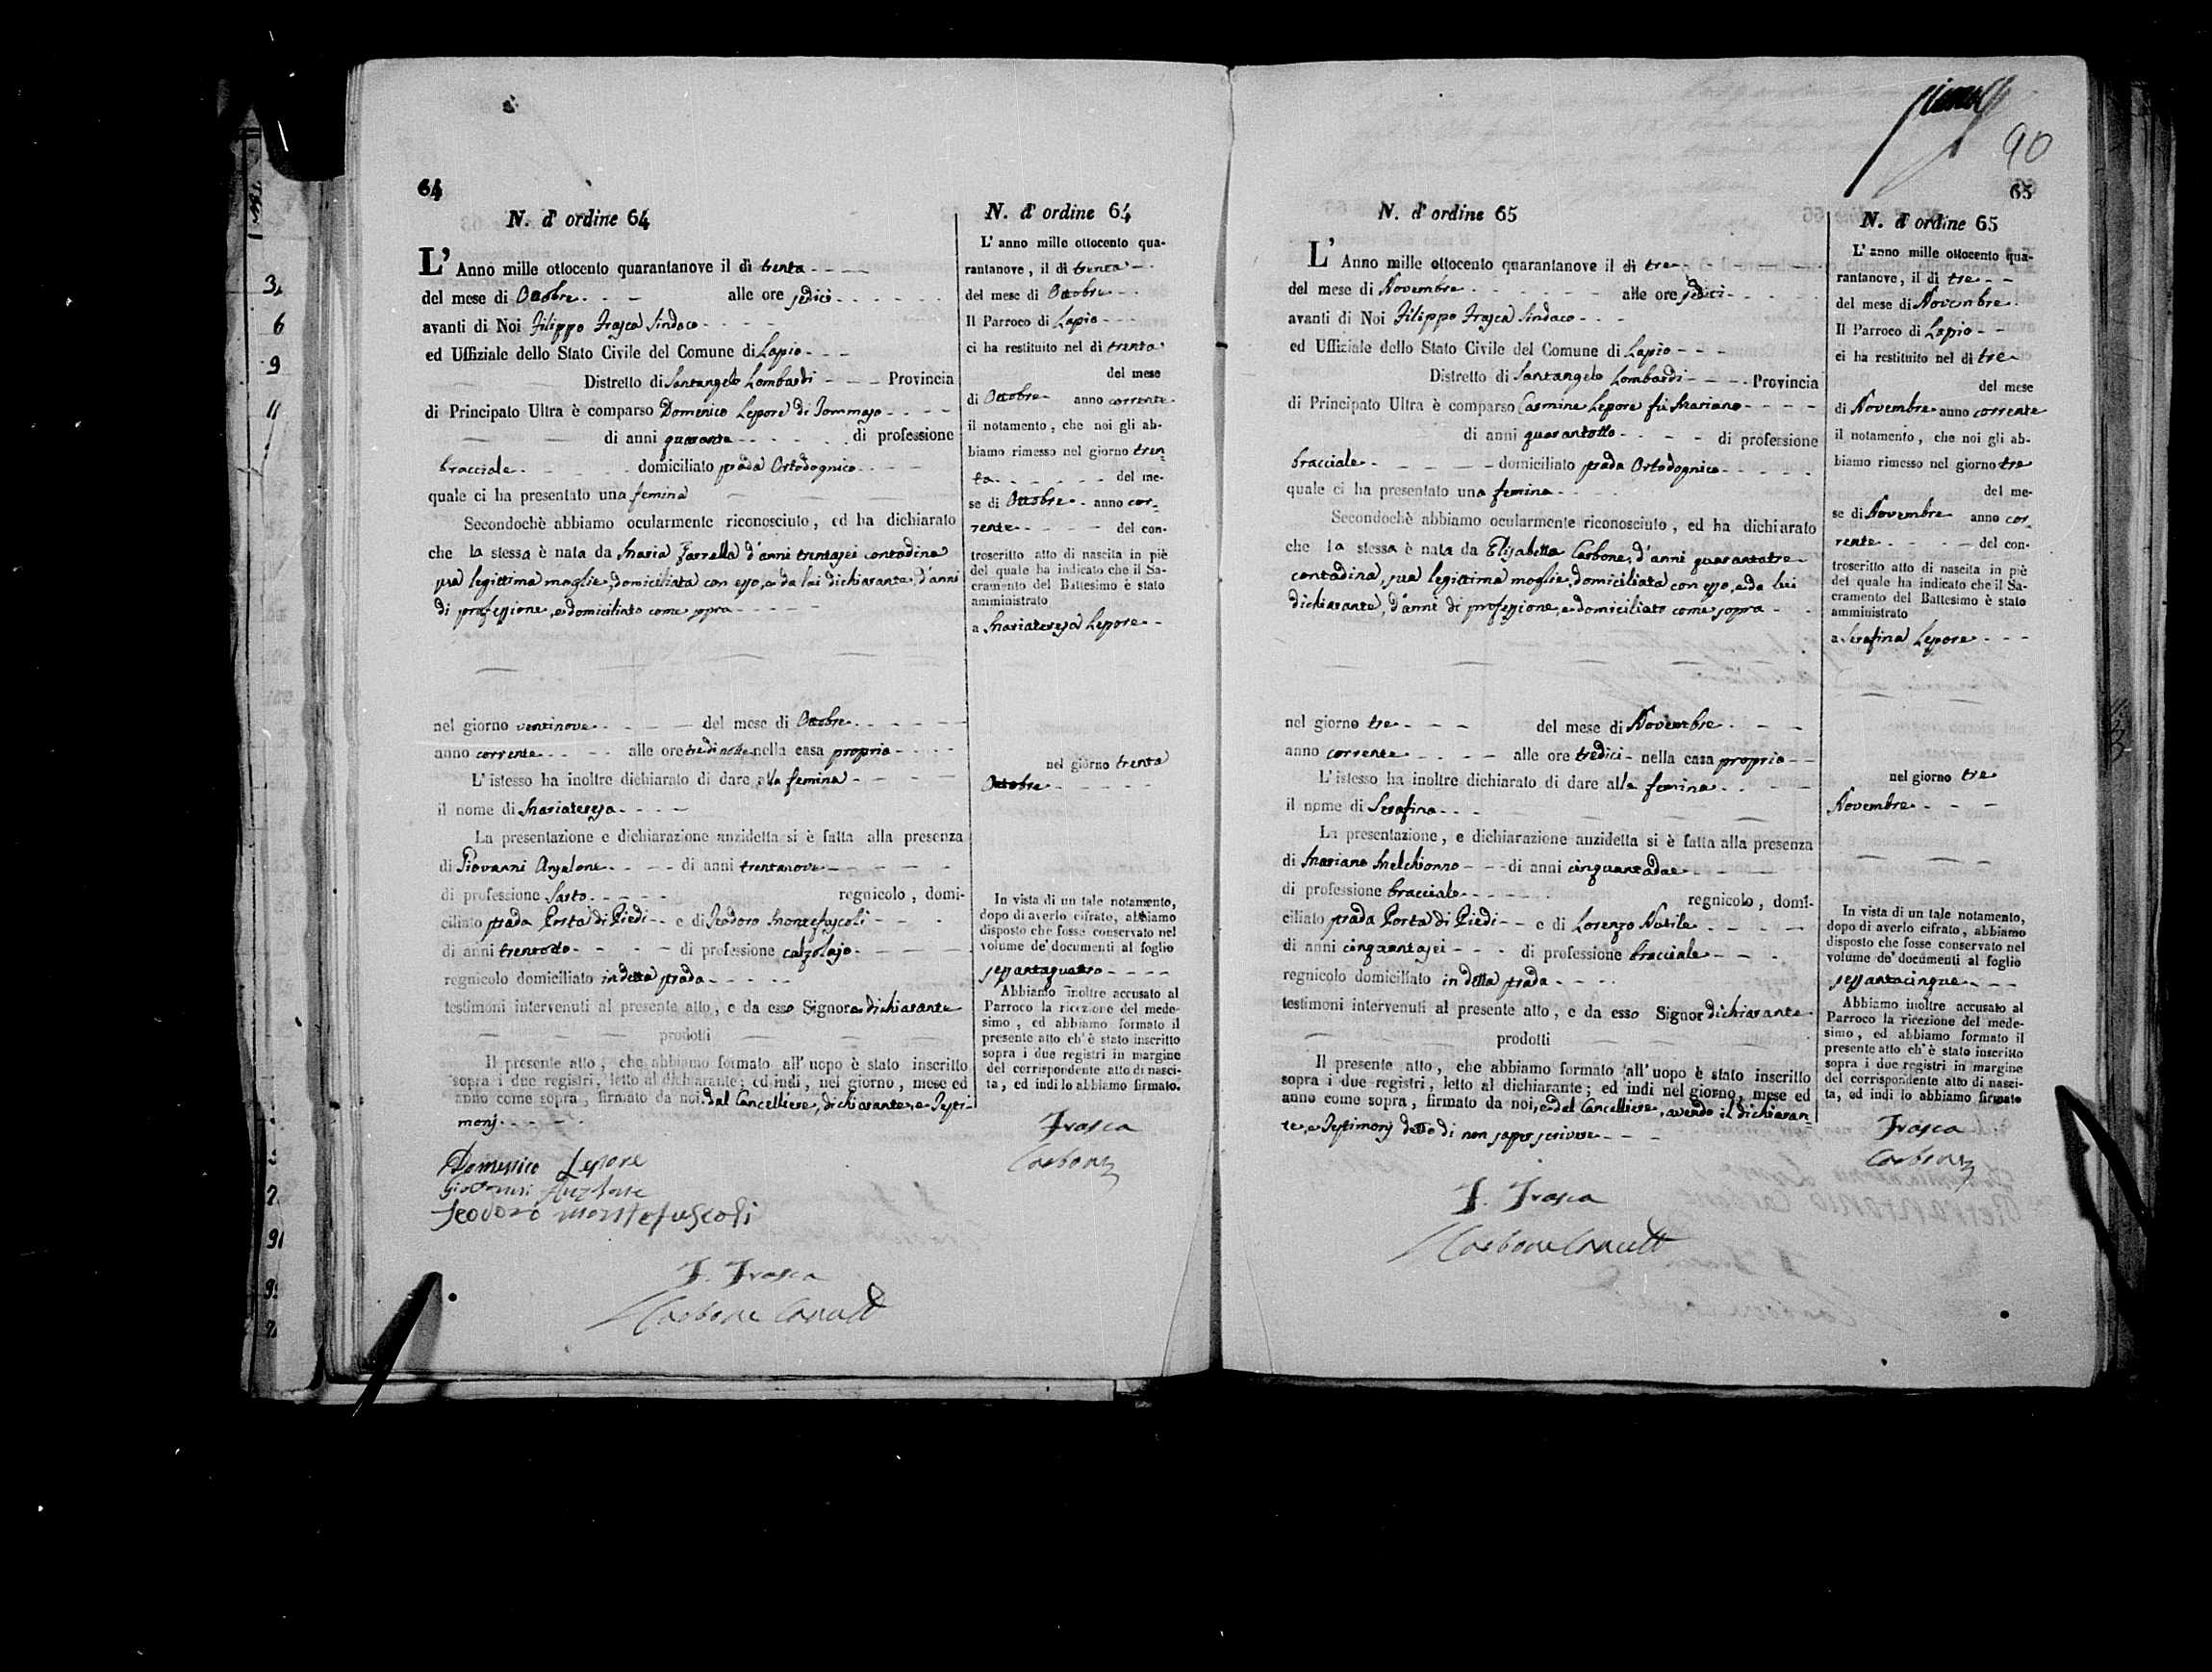 64
N. d' ordine 64
L' Anno mille ottocento quarantanove il di trenta
del mese di Ottobre alle ore sedici
avanti di Noi Filippo Frasca Sindaco
ed Uffiziale dello Stato Civile del Comune di Lapio
Distretto di Santangelo Lombardi Provincia
di Principato Ultra è comparso Domenico Lepore di Tommaso
di anni quaranta di professione
bracciale domiciliato strada Ortodognico
quale ci ha presentato una femina
Secondochè abbiamo ocularmente riconosciuto, ed ha dichiarato
che la stessa è nata da Maria Farrella d'anni trentasei contadina
sua legittima moglie, domiciliata con esso, e da lui dichiarante, d'anni
di professione, e domiciliato come sopra
nel giorno ventinove del mese di Ottobre
anno corrente alle ore tre di notte nella casa propria
L'istesso ha inoltre dichiarato di dare alla femina
il nome di Mariateresa
La presentazione e dichiarazione anzidetta si è fatta alla presenza
di Giovanni Anzalone di anni trentanove
di professione Sarto regnicolo, domi-
ciliato strada Porta di Piedi e di Teodoro Montefuscoli
di anni trentotto di professione calzolajo
regnicolo domiciliato in detta strada
testimoni intervenuti al presente atto, e da esso Signor dichiarante
prodotti
Il presente atto, che abbiamo formato all'uopo è stato inscritto
sopra i due registri, letto al dichiarante; ed indi, nel giorno, mese ed
anno come sopra, firmato da noi, dal Cancelliere, dichiarante, e Testi-
monj
Domenico Lepore
Giovanni Anzalone
Teodoro Montefuscoli
F. Frasca
Carbone Cancell
N. d' ordine 64
L' anno mille ottocento qua-
rantanove, il di trenta
del mese di Ottobre
Il Parroco di Lapio
ci ha restituito nel di trenta
del mese
di Ottobre anno corrente
il notamento, che noi gli ab-
biamo rimesso nel giorno tren
ta del me-
se di Ottobre anno cor-
rente del con-
troscritto atto di nascita in piè
del quale ha indicato che il Sa-
cramento del Battesimo è stato
amministrato
a Mariateresa Lepore
nel giorno trenta
Ottobre
In vista di un tale notamento,
dopo di averlo cifrato, abbiamo
disposto che fosse conservato nel
volume de' documenti al foglio
sessantaquattro
Abbiamo inoltre accusato al
Parroco la ricezione del mede-
simo, ed abbiamo formato il
presente atto ch'è stato inscritto
sopra i due registri in margine
del corrispondente atto di nasci-
ta, ed indi lo abbiamo firmato.
Frasca
Carbone
90
65
N. d' ordine 65
L' Anno mille ottocento quarantanove il di tre
del mese di Novembre alle ore sedici
avanti di Noi Filippo Frasca Sindaco
ed Uffiziale dello Stato Civile del Comune di Lapio
Distretto di Santangelo Lombardi Provincia
di Principato Ultra è comparso Carmine Lepore fu Mariano
di anni quarantotto di professione
bracciale domiciliato strada Ortodognico
quale ci ha presentato una femina
Secondochè abbiamo ocularmente riconosciuto, ed ha dichiarato
che la stessa è nata da Elisabetta Carbone, d'anni quarantatre
contadina, sua legittima moglie, domiciliata con esso, e da lui
dichiarante, d'anni di professione, e domiciliato come sopra
nel giorno tre del mese di Novembre
anno corrente alle ore tredici nella casa propria
L'istesso ha inoltre dichiarato di dare alla femina
il nome di Serafina
La presentazione, e dichiarazione anzidetta si è fatta alla presenza
di Mariano Melchionno di anni cinquantadue
di professione bracciale regnicolo, domi-
ciliato strada Porta di Piedi e di Lorenzo Nutile
di anni cinquantasei di professione bracciale
regnicolo domiciliato in detta strada
testimoni intervenuti al presente atto, e da esso Signor dichiarante
prodotti
Il presente atto, che abbiamo formato all'uopo è stato inscritto
sopra i due registri, letto al dichiarante; ed indi nel giorno, mese ed
anno come sopra, firmato da noi, e dal Cancelliere, avendo il dichiaran
te, e Testimonj detto di non saper scrivere
F. Frasca
Carbone Cancell
N. d' ordine 65
L' anno mille ottocento qua-
rantanove, il di tre
del mese di Novembre
Il Parroco di Lapio
ci ha restituito nel di tre
del mese
di Novembre anno corrente
il notamento, che noi gli ab-
biamo rimesso nel giorno tre
del me-
se di Novembre anno cor
rente del con-
troscritto atto di nascita in piè
del quale ha indicato che il Sa-
cramento del Battesimo è stato
amministrato
a Serafina Lepore
nel giorno tre
Novembre
In vista di un tale notamento,
dopo di averlo cifrato, abbiamo
disposto che fosse conservato nel
volume de' documenti al foglio
sessantacinque
Abbiamo inoltre accusato al
Parroco la ricezione del mede-
simo, ed abbiamo formato il
presente atto ch'è stato inscritto
sopra i due registri in margine
del corrispondente atto di nasci-
ta, ed indi lo abbiamo firmato
Frasca
Carbone